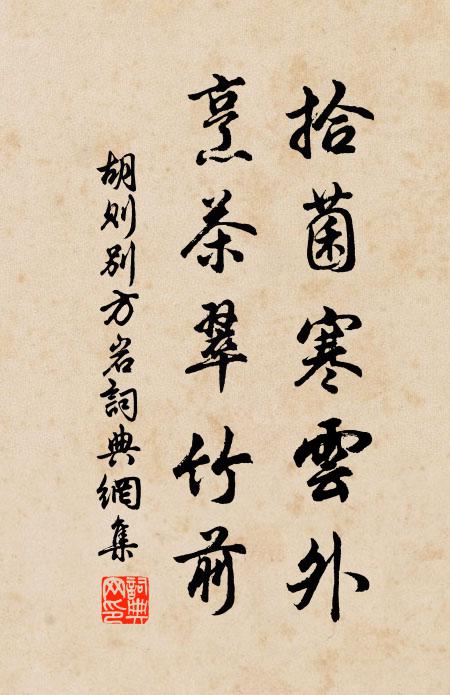 拾菌寒雲外
烹茶翠竹前
胡则别方岩詞典網集
詞典网印